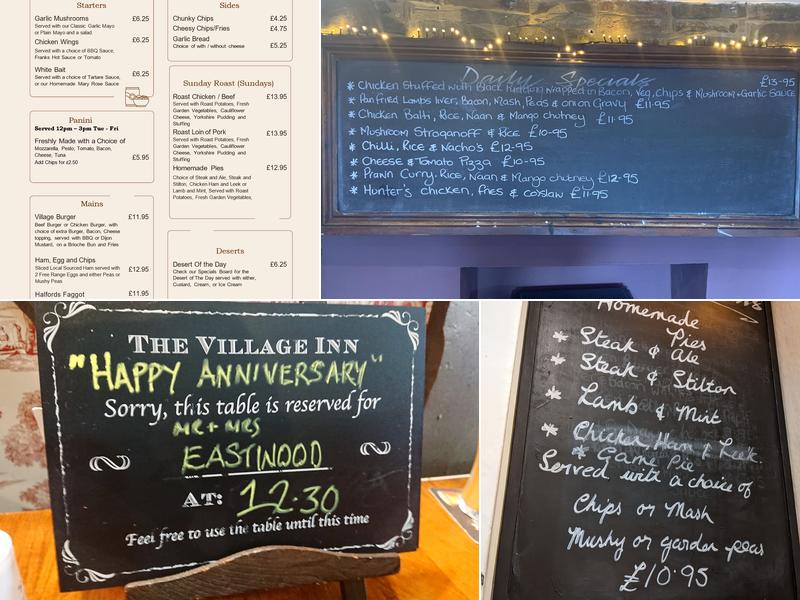 Starters
Garlic Mushrooms £6.25
Served with our Classic Garlic Mayo
or Plain Mayo and a salad.
Chicken Wings £6.25
Served with a choice of BBQ Sauce,
Franks Hot Sauce or Tomato
White Bait £6.25
Served with a choice of Tartare Sauce,
or our Homemade Mary Rose Sauce
Panini
Served 12pm – 3pm Tue - Fri
Freshly Made with a Choice of
Mozzarella, Pesto, Tomato, Bacon,
Cheese, Tuna £5.95
Add Chips for £2.50
Mains
Village Burger £11.95
Beef Burger or Chicken Burger, with
choice of extra Burger, Bacon, Cheese
topping, served with BBQ or Dijon
Mustard, on a Brioche Bun and Fries
Ham, Egg and Chips
Sliced Local Sourced Ham served with £12.95
2 Free Range Eggs and either Peas or
Mushy Peas
Halfords Faggot £11.95
Sides
Chunky Chips £4.25
Cheesy Chips/Fries £4.75
Garlic Bread
Choice of with / without cheese £5.25
Sunday Roast (Sundays)
Roast Chicken / Beef £13.95
Served with Roast Potatoes, Fresh
Garden Vegetables, Cauliflower
Cheese, Yorkshire Pudding and
Stuffing
Roast Loin of Pork £13.95
Served with Roast Potatoes, Fresh
Garden Vegetables, Cauliflower
Cheese, Yorkshire Pudding and
Stuffing
Homemade Pies £12.95
Choice of Steak and Ale, Steak and
Stilton, Chicken Ham and Leek or
Lamb and Mint, Served with Roast
Potatoes, Fresh Garden Vegetables,
Deserts
Desert Of the Day £6.25
Check our Specials Board for the
Desert of The Day served with either,
Custard, Cream, or Ice Cream
Daily Specials
* Chicken Stuffed with Black Pudding wrapped in Bacon, Veg, Chips & Mushroom+Garlic Sauce £13-95
* Pan Fried Lambs liver, Bacon, Mash, Peas & onion Gravy £11.95
* Chicken Balti, Rice, Naan & Mango chutney £11.95
* Mushroom Stroganoff & Rice £10-95
* Chilli, Rice & Nacho's £12-95
* Cheese & Tomato Pizza £10-95
* Prawn Curry, Rice, Naan & Mango chutney £12-95
* Hunter's chicken, fries & colslaw £11.95
THE VILLAGE INN
"HAPPY ANNIVERSARY"
Sorry, this table is reserved for
MR + MRS
EASTWOOD
AT: 12.30
Feel free to use the table until this time
Homemade
Pies
* Steak & Ale
* Steak & Stilton
* Lamb & Mint
* Chicken Ham & Leek.
* Game Pie
Served with a choice of
Chips or Mash
Mushy or garden peas
£10.95